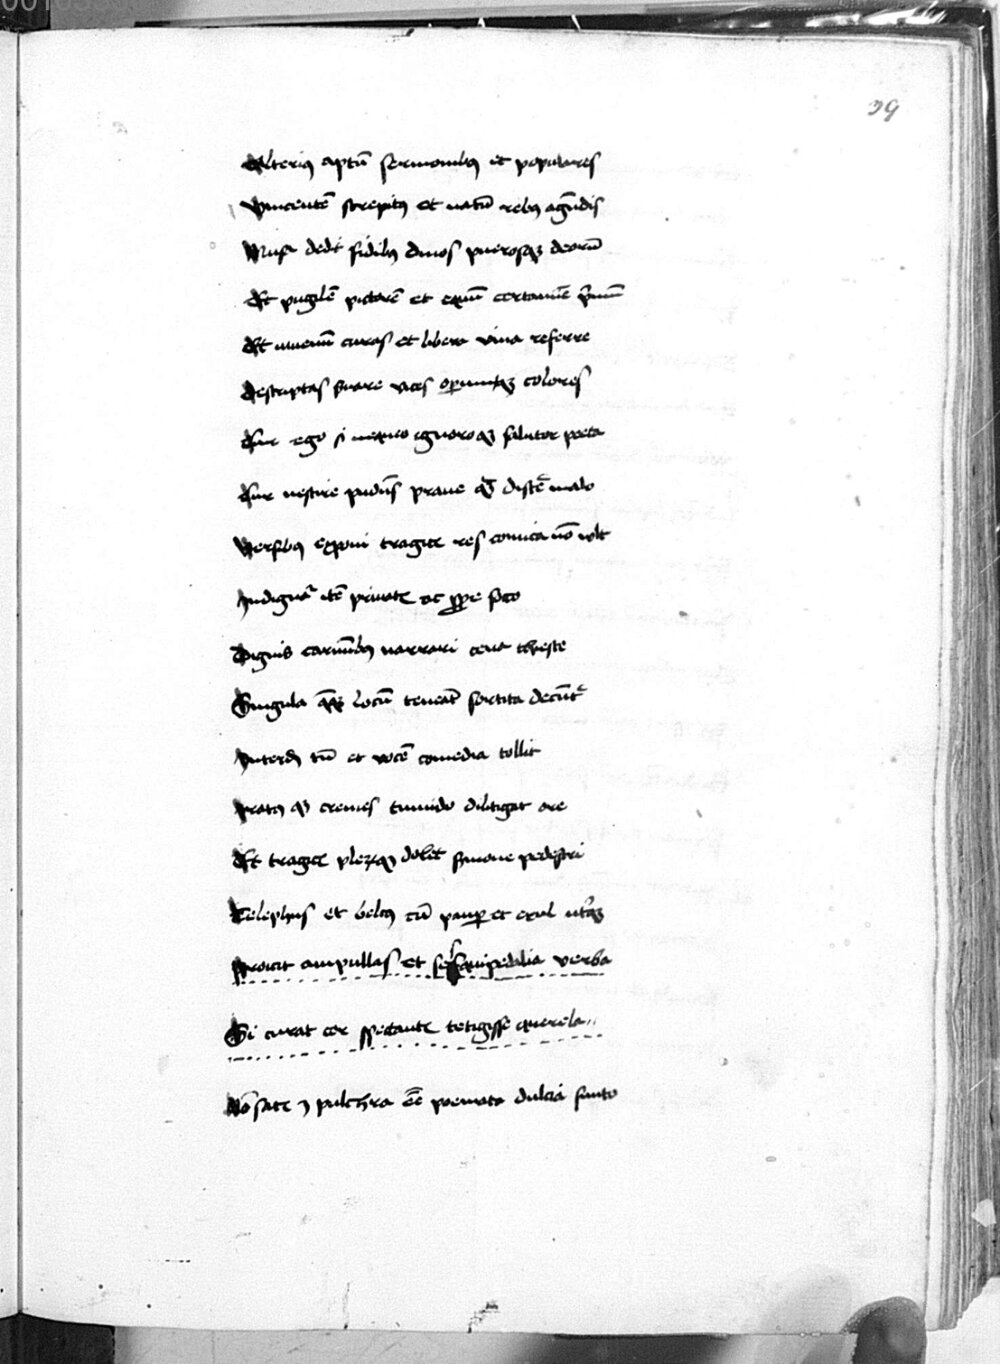 39
Alteriꝰ aptū sermonibꝰ et populares
Vincentē strepitꝰ et natū rebꝰ agēdis
Musa dedit fidibꝰ diuos puerosqꝫ deorū
Et pugilē victorē et equū certamīe p̄mū
Et iuuenū curas et libera vina referre
Descriptas seruare uices operumqꝫ colores
Cur ego si nequeo ignoroqꝫ salutor poeta
Cur nescire pudēs praue qͣꝫ discere malo
Versibꝰ exponi tragicis res comica nō vlt
Indignaᷓ itē priuatis ac ꝓpe socco
Dignis carmībꝰ narrari cena thieste
Singula qͣqꝫ locū teneāt sortita decēter
Interdū tn̄ et vocē comedia tollit
Iratꝰqꝫ cremes tumido dilitigat ore
Et tragicꝰ plerūqꝫ dolet sermone pedestri
Telephus et peleꝰ cū pauꝑ et exul utqꝫ
Proicit ampullas et sesquipedalia verba
Si curat cor spectantis tetigisse querela
Nō satis ē pulchra eē poemata dulcia sunto